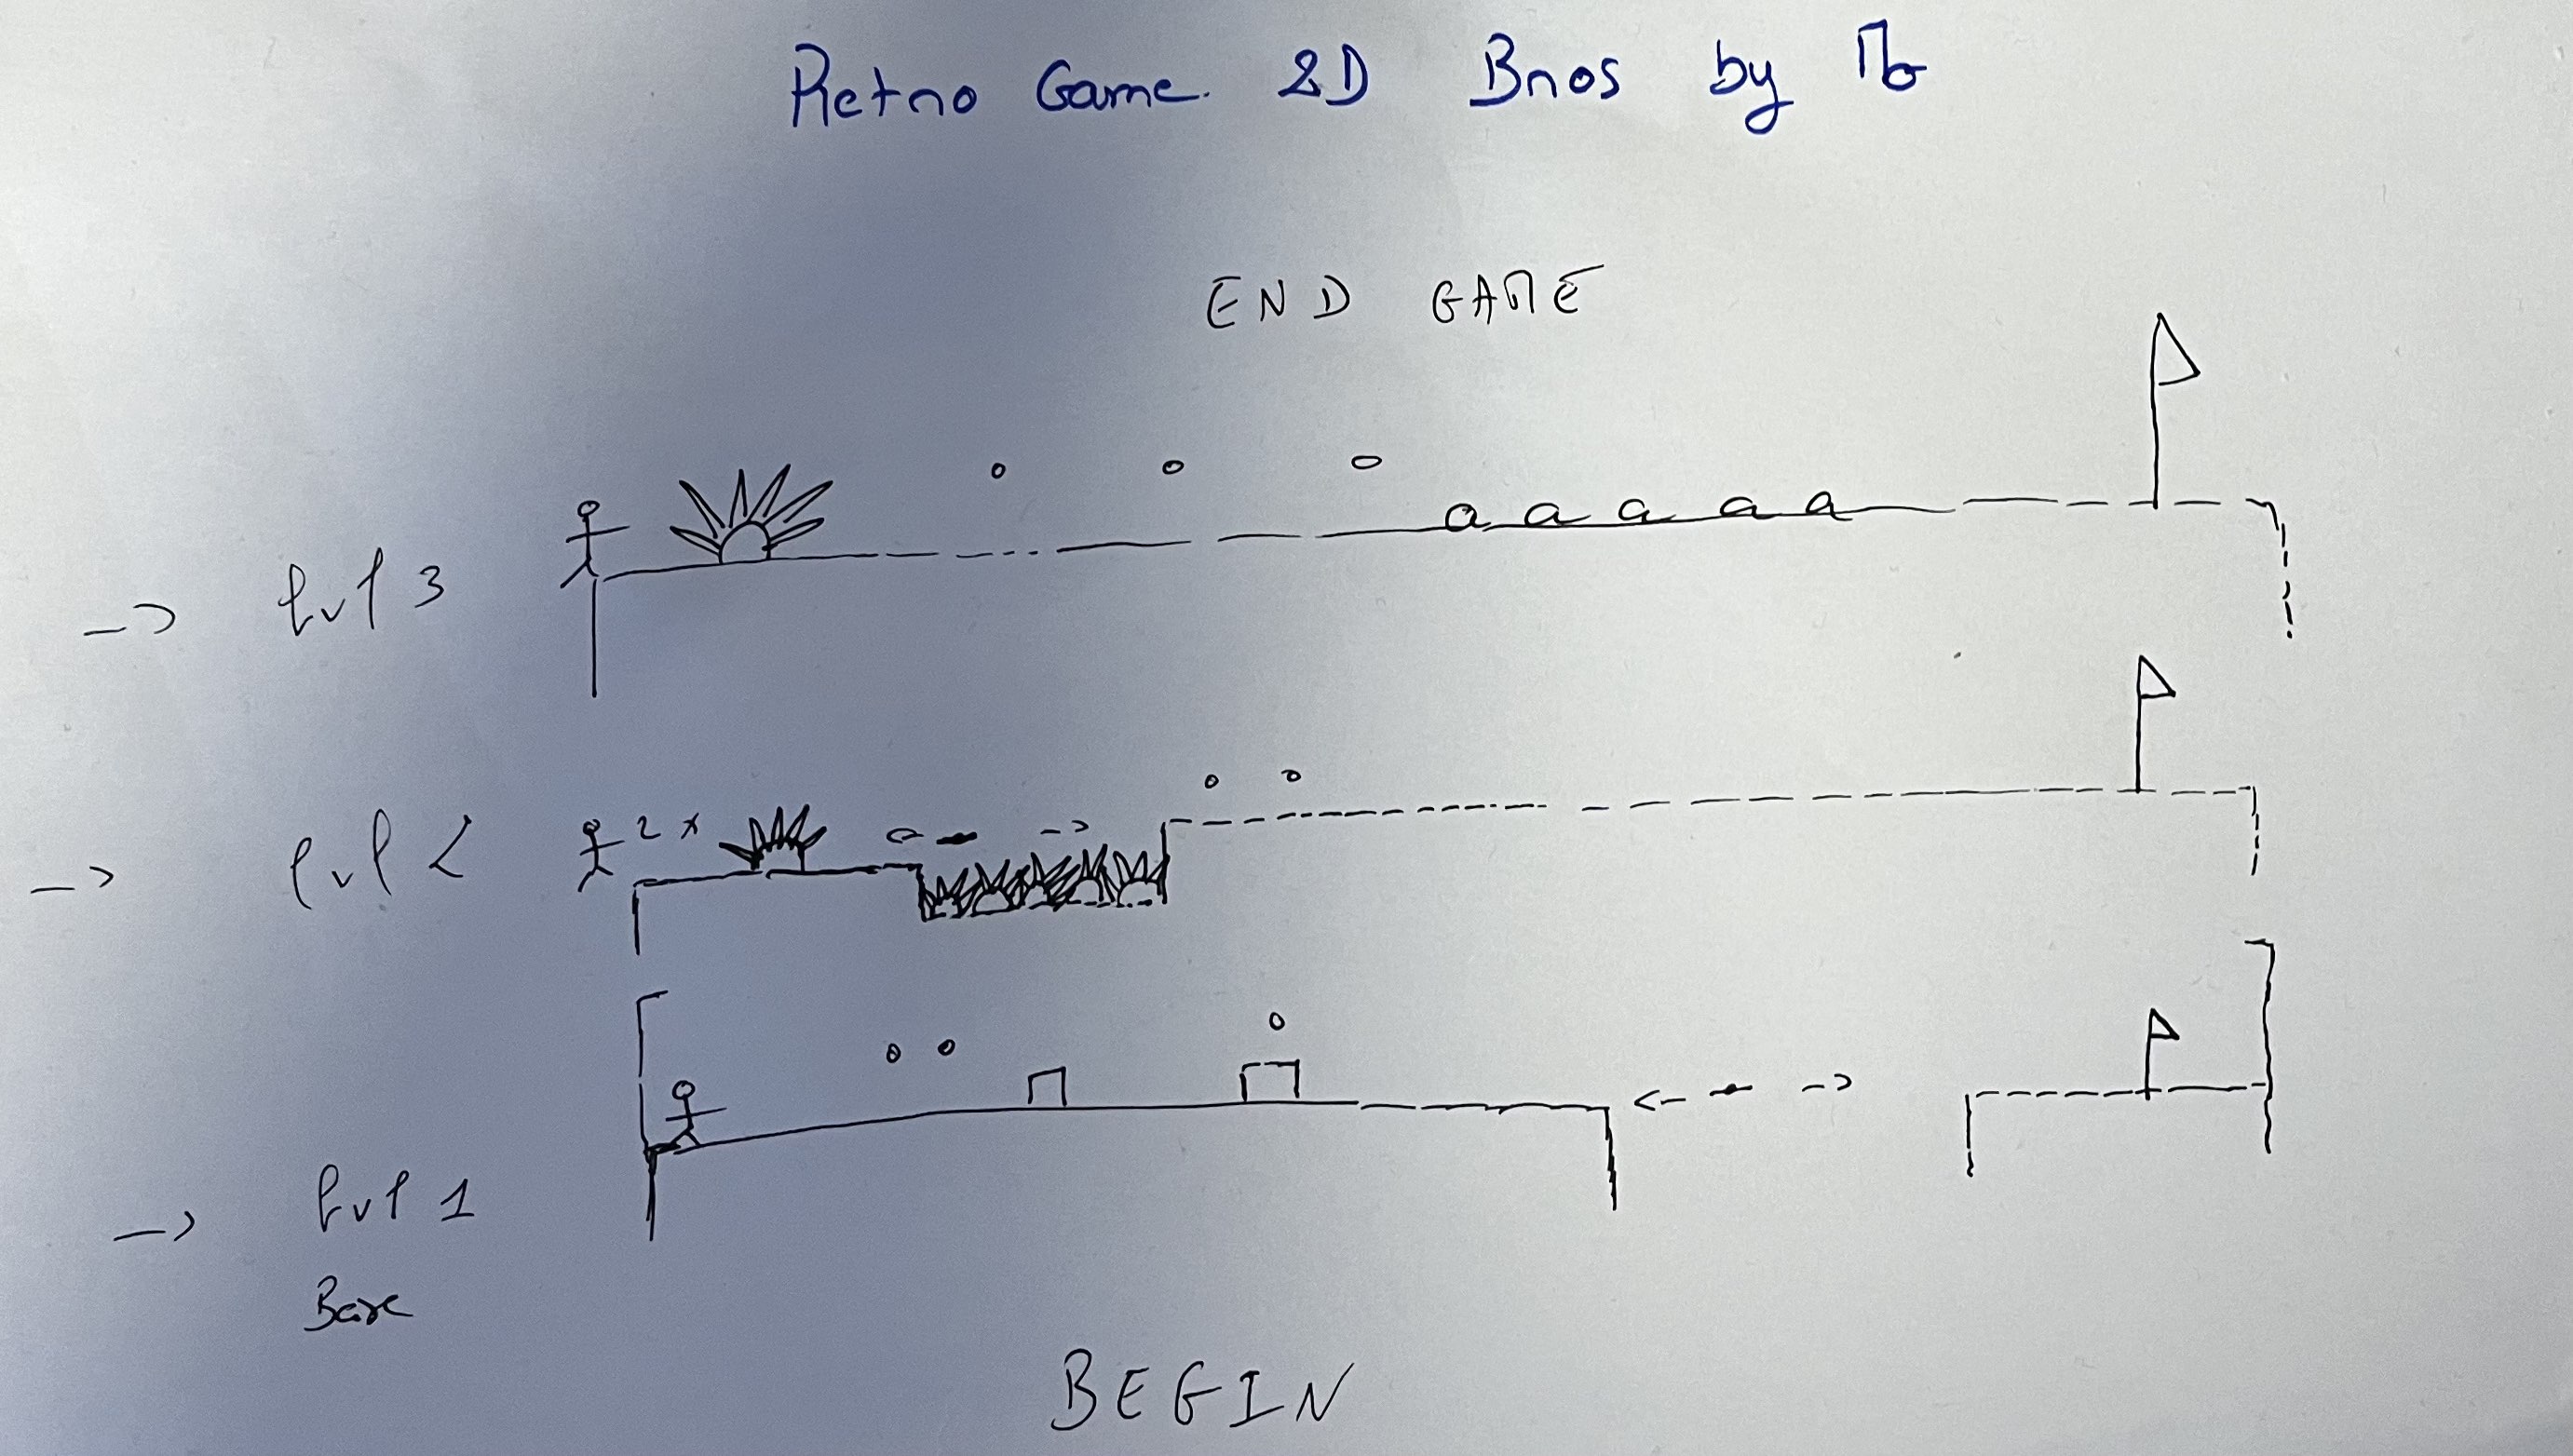 Retro Game 2D Bros by Mo
END GAME
-> lvl 3
-> lvl 2
2x
-> lvl 1
Base
BEGIN